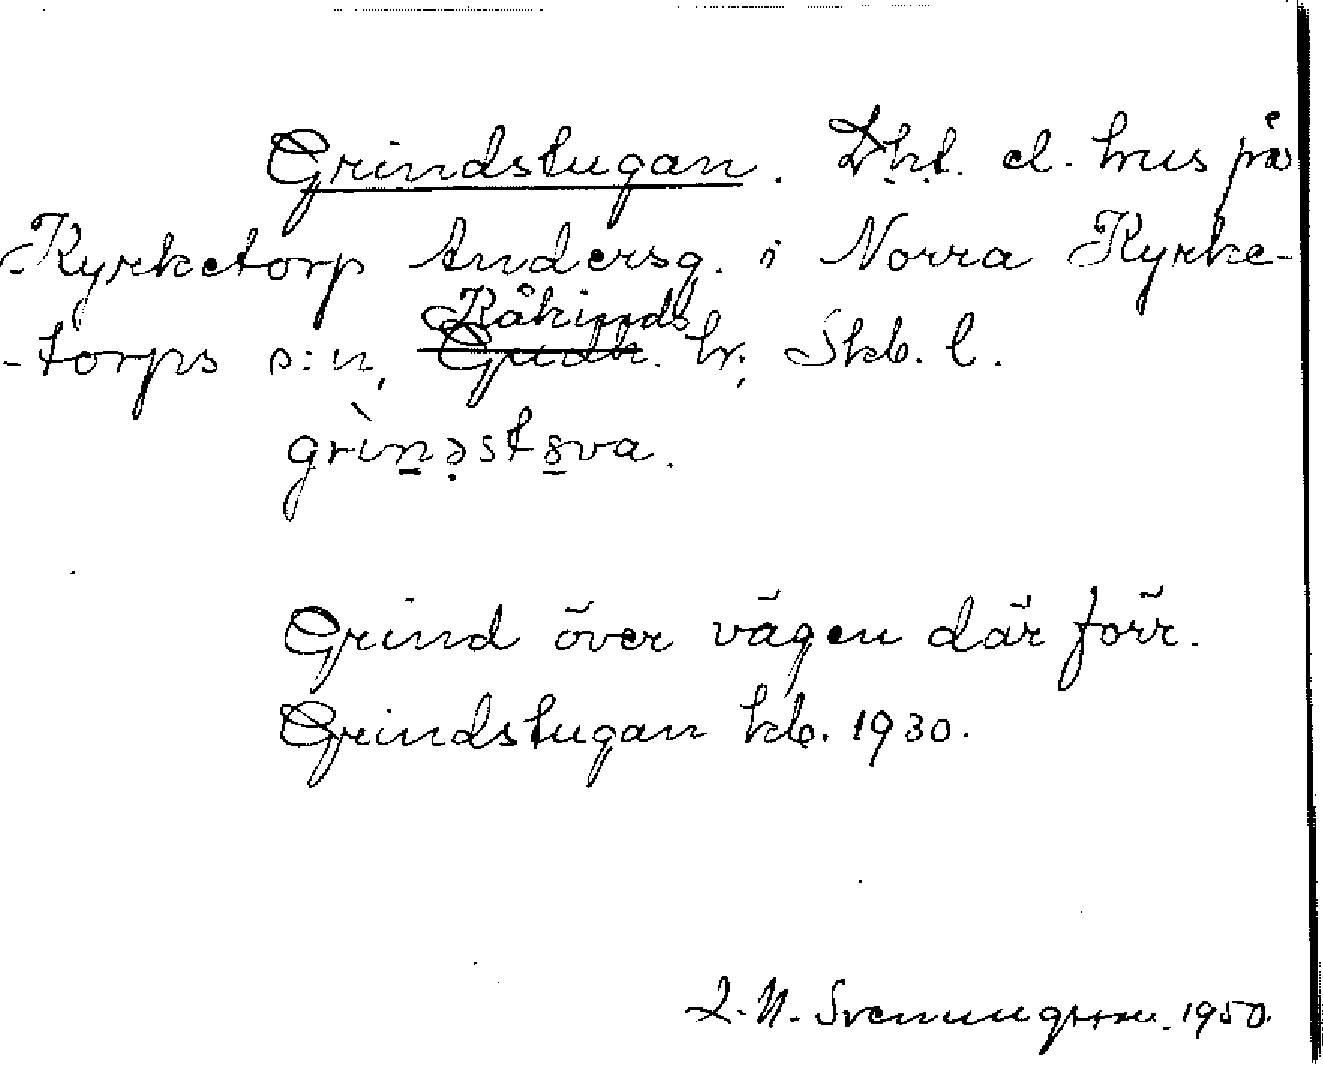 Grindstugan. Lht. el. hus på
Kyrketorp Andersg. i Norra Kyrke-
-torps s:n, Kåkinds hr; Skb. l.
grìn̲ə̣sts̲va.
Grind över vägen där förr.
Grindstugan kb. 1930.
L. N. Svenungsson. 1950.